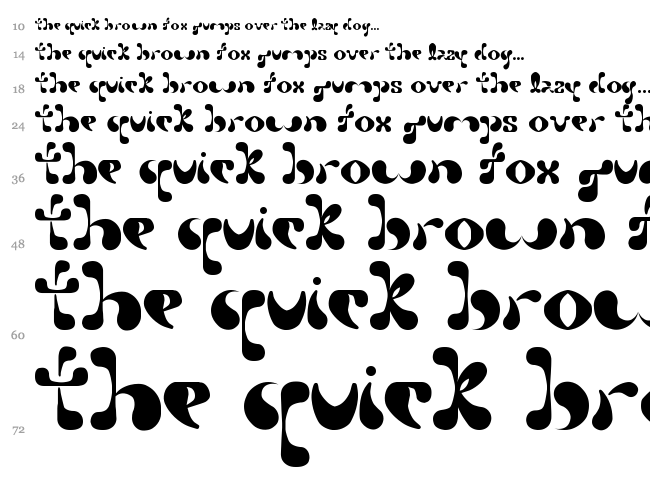 10 the quick brown fox jumps over the lazy dog...
14 the quick brown fox jumps over the lazy dog...
18 the quick brown fox jumps over the lazy dog...
24 the quick brown fox jumps over th
36 the quick brown fox ju
48 the quick brown f
60 the quick brow
72 the quick bro